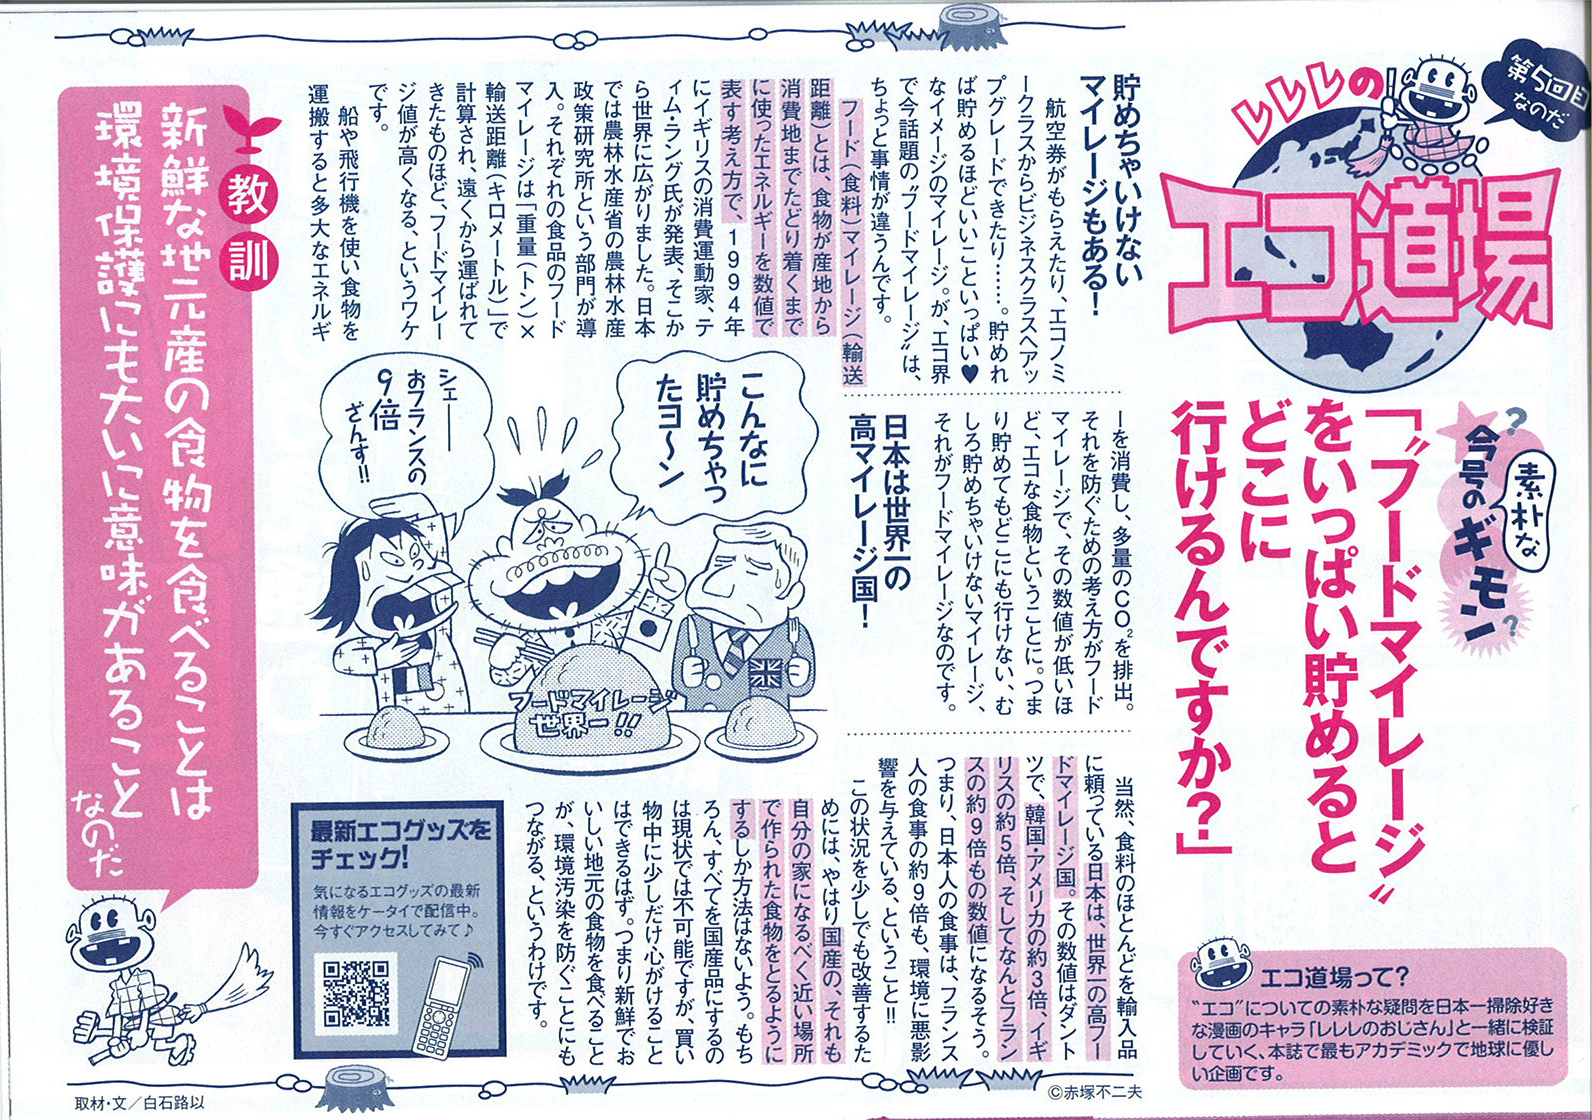 第5回目
なのだ
レレレの
エコ道場
素朴な
今号のギモン
？
？
「“フードマイレージ”
をいっぱい貯めると
どこに
行けるんですか？」
エコ道場って？
“エコ”についての素朴な疑問を日本一掃除好き
な漫画のキャラ「レレレのおじさん」と一緒に検証
していく、本誌で最もアカデミックで地球に優し
い企画です。
貯めちゃいけない
マイレージもある！
航空券がもらえたり、エコノミ
ークラスからビジネスクラスへアッ
プグレードできたり……。貯めれ
ば貯めるほどいいことといっぱい♥
なイメージのマイレージ。が、エコ界
で今話題の“フードマイレージ”は、
ちょっと事情が違うんです。
フード（食料）マイレージ（輸送
距離）とは、食物が産地から
消費地までたどり着くまで
に使ったエネルギーを数値で
表す考え方で、1994年
にイギリスの消費運動家、テ
ィム・ラング氏が発表、そこか
ら世界に広がりました。日本
では農林水産省の農林水産
政策研究所という部門が導
入。それぞれの食品のフード
マイレージは「重量（トン）×
輸送距離（キロメートル）」で
計算され、遠くから運ばれて
きたものほど、フードマイレー
ジ値が高くなる、というワケ
です。
船や飛行機を使い食物を
運搬すると多大なエネルギ
ーを消費し、多量のCO₂を排出。
それを防ぐための考え方がフード
マイレージで、その数値が低いほ
ど、エコな食物ということに。つま
り貯めてもどこにも行けない、む
しろ貯めちゃいけないマイレージ、
それがフードマイレージなのです。
日本は世界一の
高マイレージ国！
当然、食料のほとんどを輸入品
に頼っている日本は、世界一の高フー
ドマイレージ国。その数値はダント
ツで、韓国・アメリカの約3倍、イギ
リスの約5倍、そしてなんとフラン
スの約9倍もの数値になるそう。
つまり、日本人の食事は、フランス
人の食事の約9倍も、環境に悪影
響を与えている、ということ!!
この状況を少しでも改善するた
めには、やはり国産の、それも
自分の家になるべく近い場所
で作られた食物をとるように
するしか方法はないよう。もち
ろん、すべてを国産品にするの
は現状では不可能ですが、買い
物中に少しだけ心がけること
はできるはず。つまり新鮮でお
いしい地元の食物を食べること
が、環境汚染を防ぐことにも
つながる、というわけです。
こんなに
貯めちゃっ
たヨ〜ン
シェー——
おフランスの
9倍
ざんす!!
フードマイレージ
世界一!!
最新エコグッズを
チェック！
気になるエコグッズの最新
情報をケータイで配信中。
今すぐアクセスしてみて♪
教訓
新鮮な地元産の食物を食べることは
環境保護にも大いに意味があること
なのだ
取材・文／白石路以
©赤塚不二夫